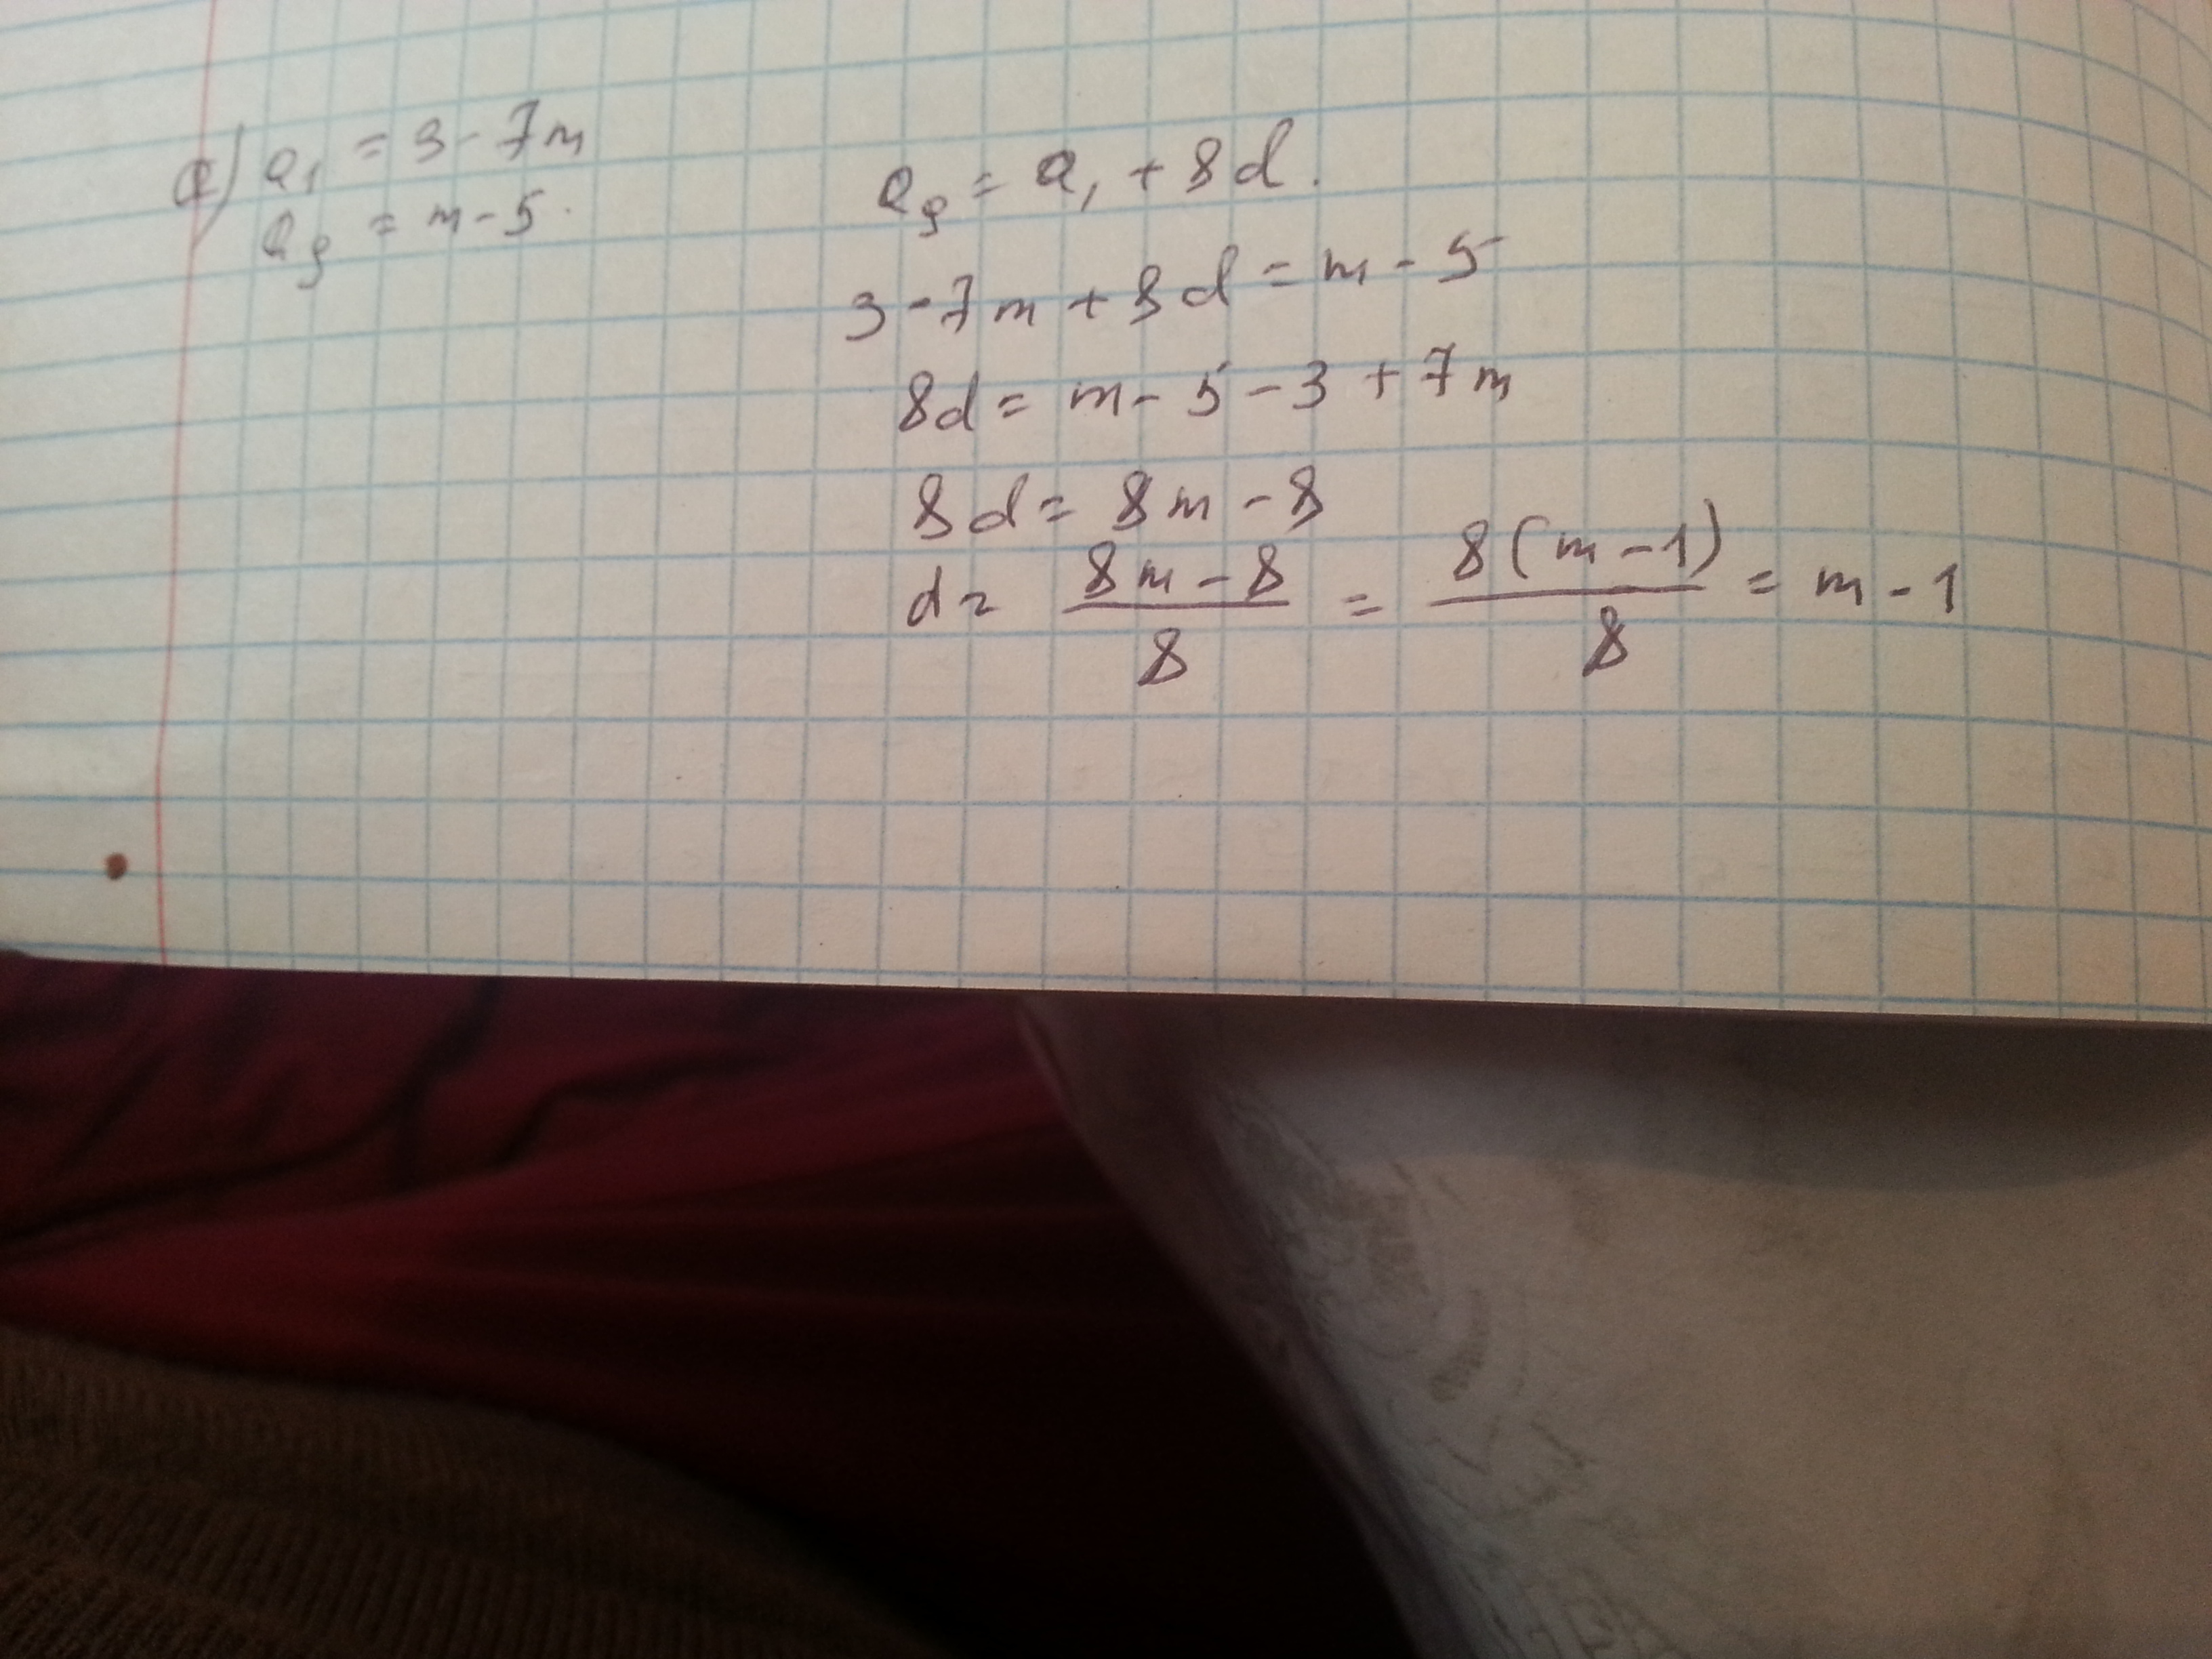 a) a₁ = 3 - 7m
a₉ = m - 5.
a₉ = a₁ + 8d.
3 - 7m + 8d = m - 5
8d = m - 5 - 3 + 7m
8d = 8m - 8
d = (8m - 8)/8 = 8(m - 1)/8 = m - 1